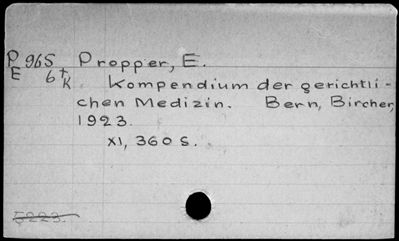 P 965 Propper, E.
E 6tk Kompendium der gerichtli-
chen Medizin. Bern, Bircher,
1923.
XI, 360 S.
5223.